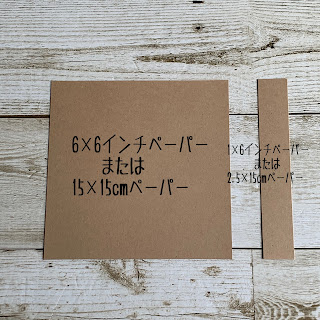 6×6インチペーパー
または
15×15cmペーパー
1×6インチペーパー
または
2.5×15cmペーパー